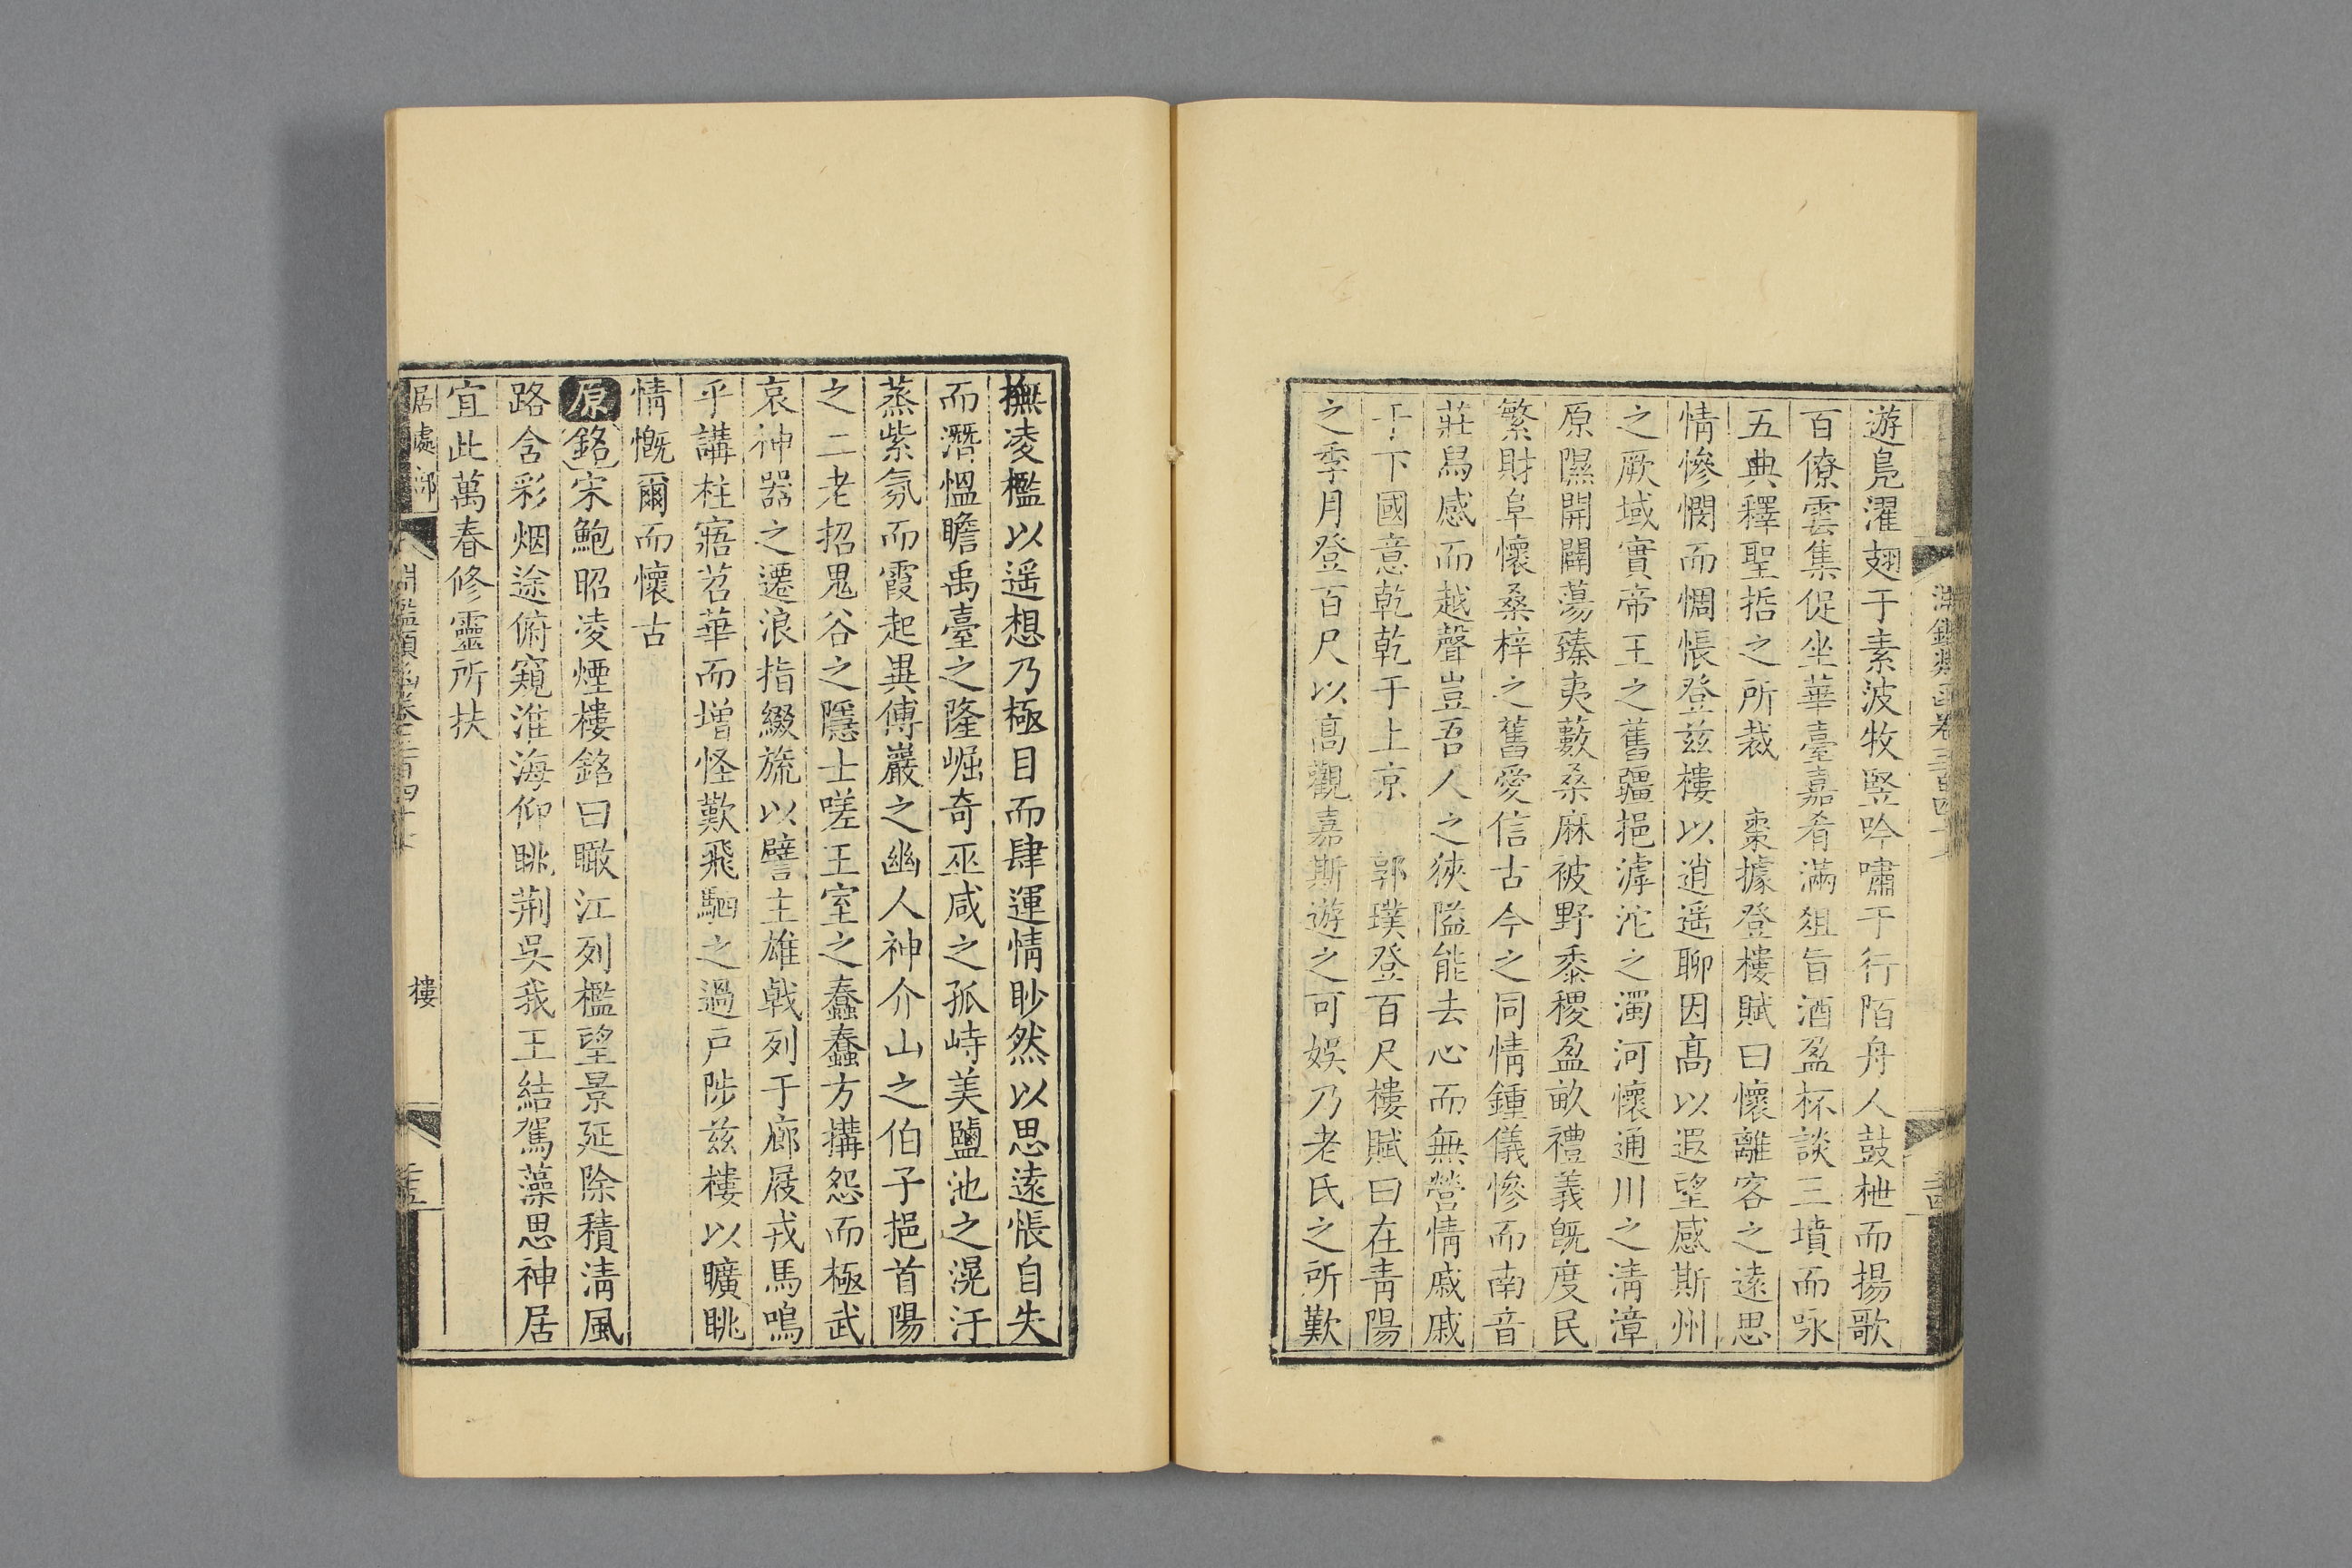 遊鳬濯翅于素波牧竪吟嘯于行陌舟人鼓枻而揚歌
百僚雲集促坐華臺嘉肴滿俎旨酒盈杯談三墳而咏
五典釋聖哲之所裁　棗據登樓賦曰懷離客之遠思
情慘憫而惆悵登兹樓以逍遥聊因髙以遐望感斯州
之厥域實帝王之舊疆挹滹沱之濁河懷通川之淸漳
原隰開闢蕩臻夷藪桑麻被野黍稷盈畝禮義旣度民
繁財阜懷桑梓之舊愛信古今之同情鍾儀慘而南音
莊舄感而越聲豈吾人之狹隘能去心而無營情戚戚
于下國意乾乾于上京　郭璞登百尺樓賦曰在靑陽
之季月登百尺以髙觀嘉斯遊之可娱乃老氏之所歎
撫凌檻以遥想乃極目而肆運情眇然以思遠悵自失
而潛愠瞻禹臺之隆崛奇巫咸之孤峙美鹽池之滉汙
蒸紫氛而霞起異傅巖之幽人神介山之伯子挹首陽
之二老招鬼谷之隱士嗟王室之蠢蠢方搆怨而極武
哀神器之遷浪指綴旒以譬主雄戟列于廊屐戎馬鳴
乎講柱寤苕華而增怪歎飛駟之過戸陟兹樓以曠眺
情慨爾而懷古
原銘宋鮑昭凌煙樓銘曰瞰江列檻望景延除積淸風
路含彩烟途俯窺淮海仰眺荆吳我王結駕藻思神居
宜此萬春修靈所扶
居處部
淵鑑類函卷三百四十七
樓
三十五